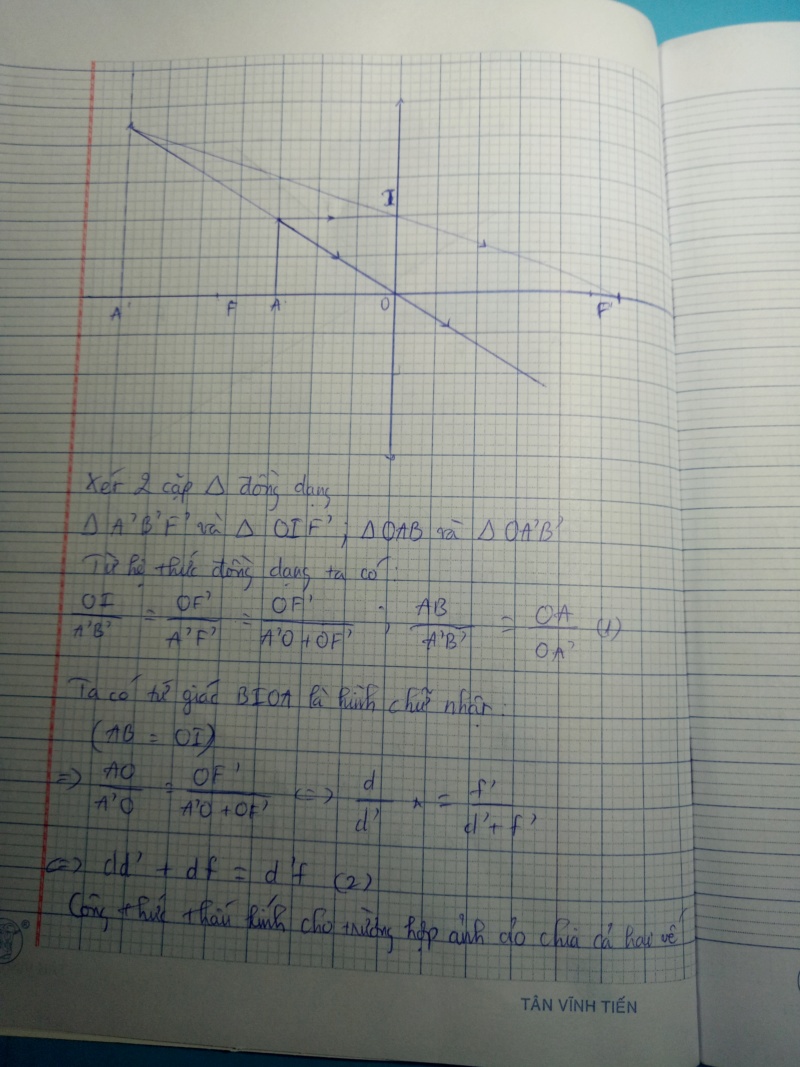 I
A' F A O F'
Xét 2 cặp Δ đồng dạng
Δ A'B'F' và Δ OIF' ; Δ OAB và Δ OA'B'
Từ hệ thức đồng dạng ta có:
OI/A'B' = OF'/A'F' = OF'/A'O + OF' ; AB/A'B' = OA/OA' (1)
Ta có tứ giác BIOA là hình chữ nhật:
(AB = OI)
=> AO/A'O = OF'/A'O + OF' <=> d/d' = f'/d' + f'
<=> dd' + df = d'f (2)
Công thức thấu kính cho trường hợp ảnh ảo chia cả hai vế
TÂN VĨNH TIẾN